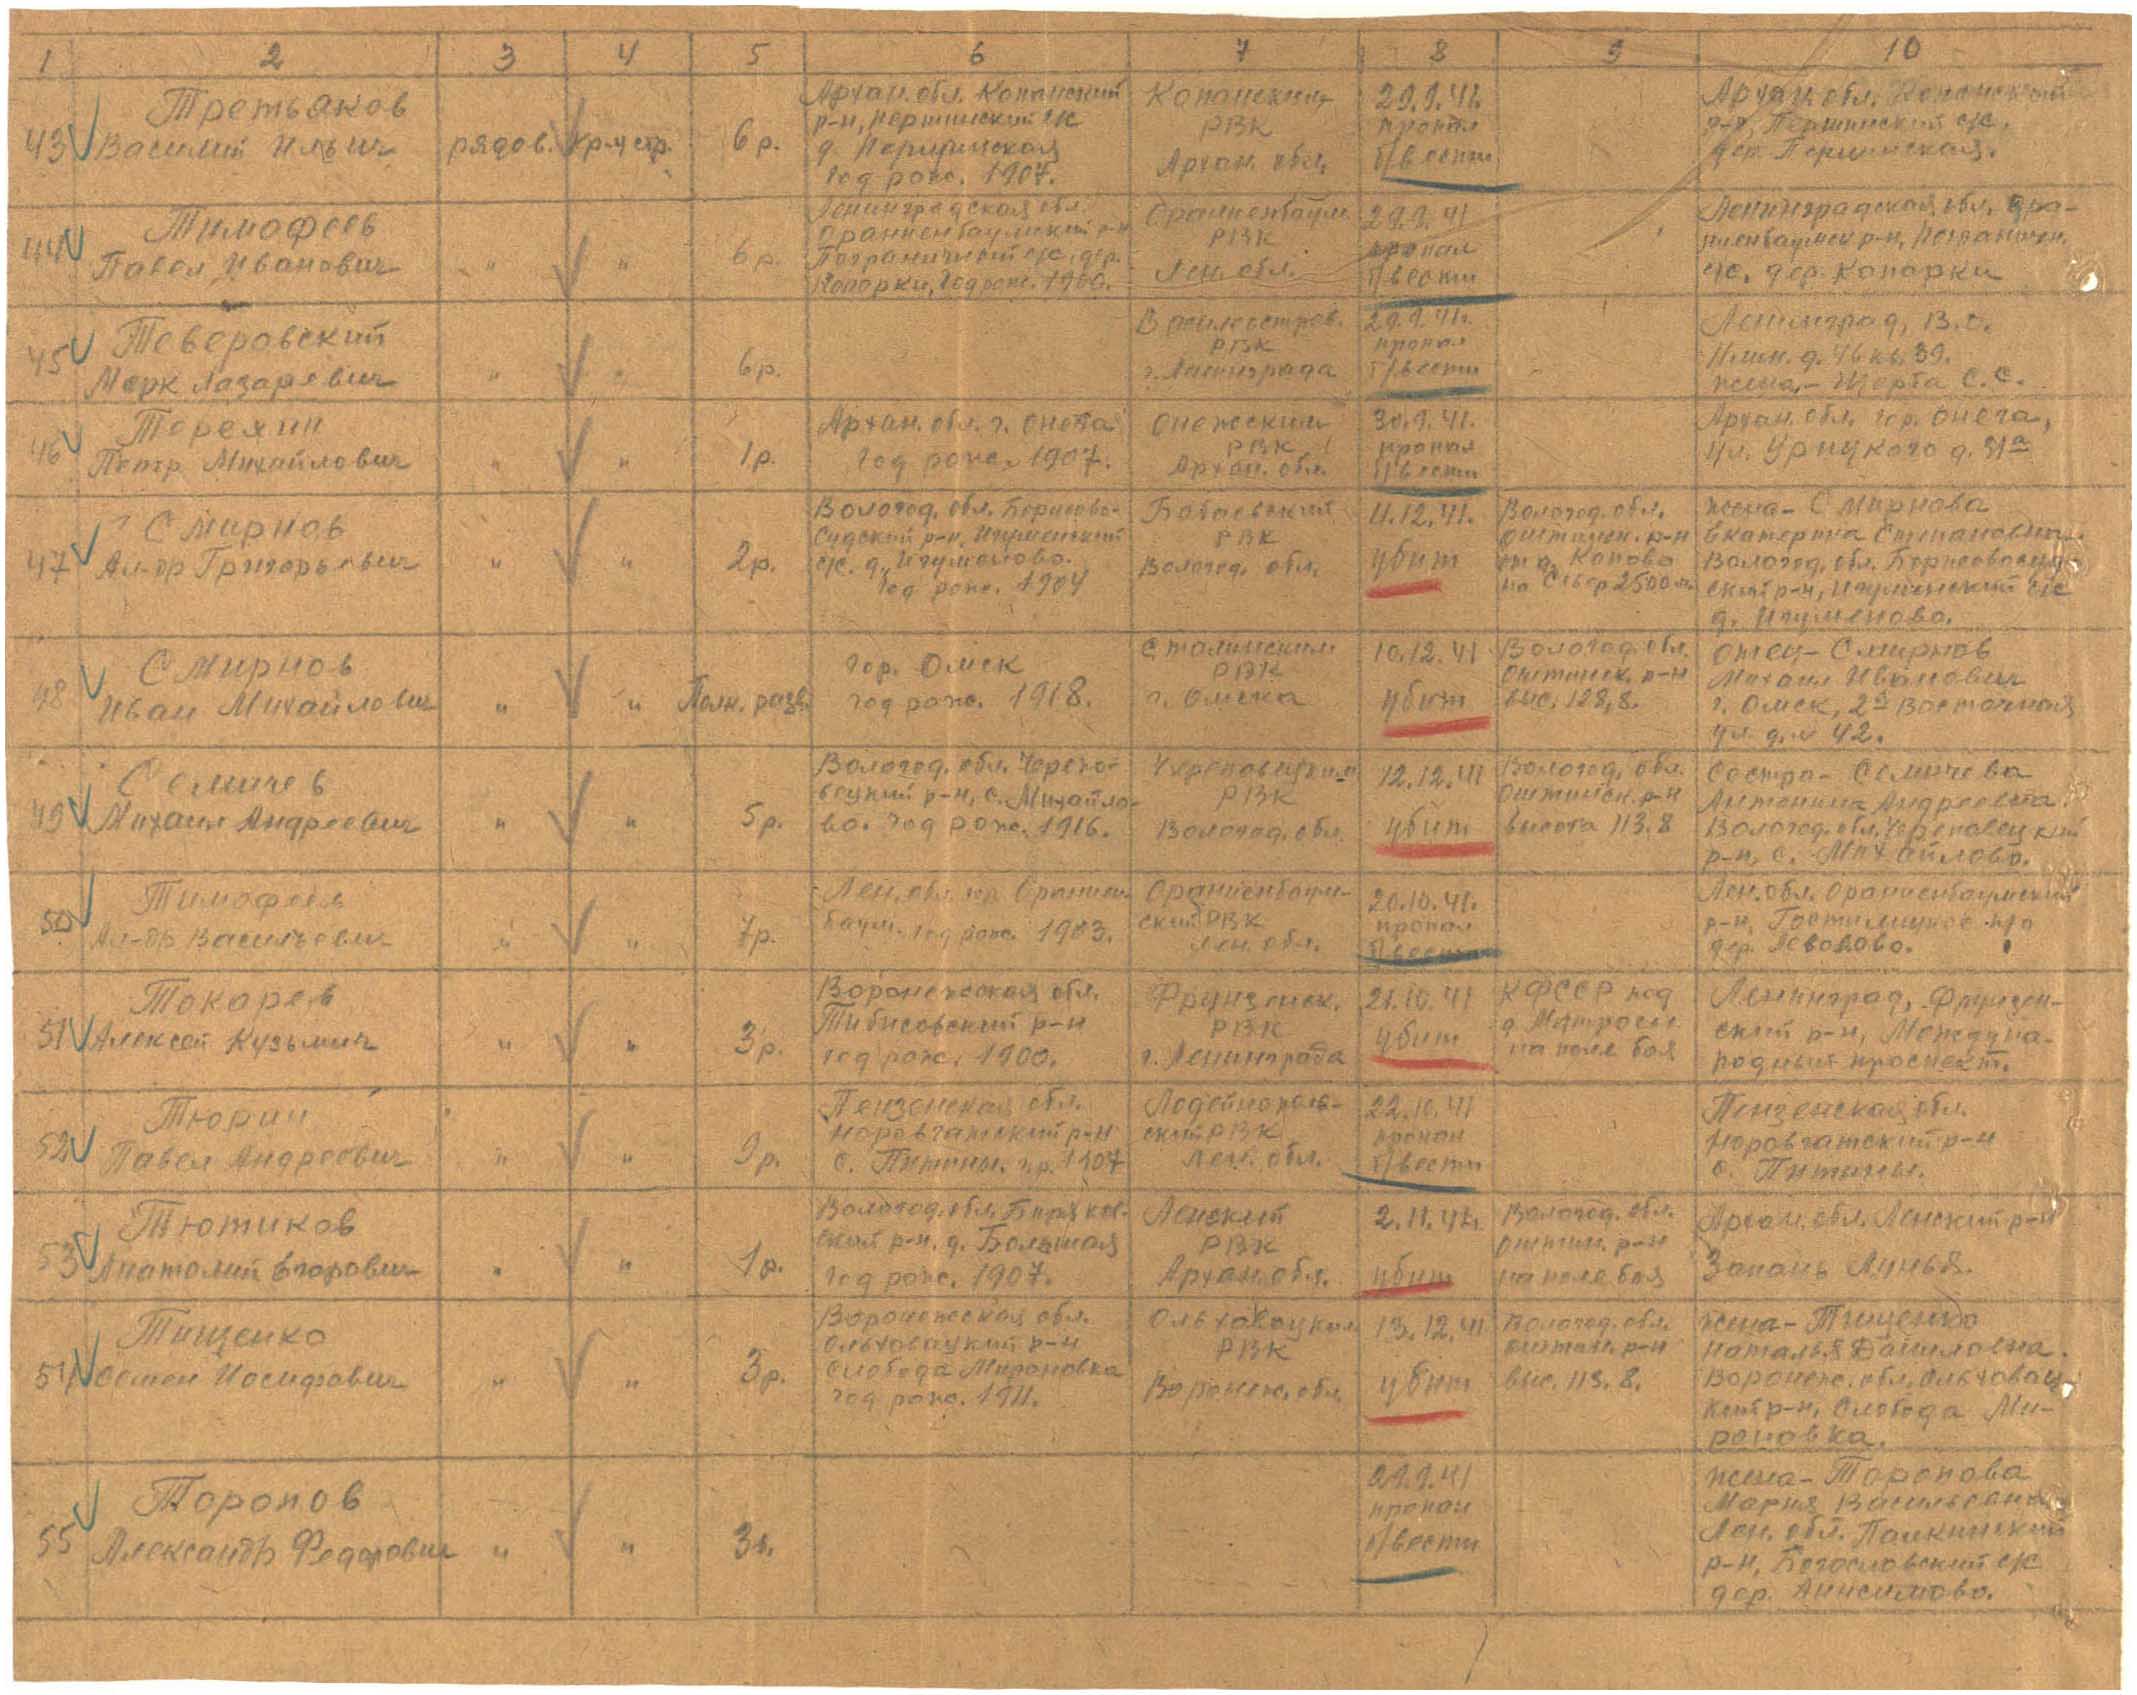 1 2 3 4 5 6 7 8 9 10
43 Третьяков
Василий Ильич
рядов.
кр-й стр.
6 р.
Архан. обл.
р-н,
д.
год рожс. 1907.
РВК
Архан. обл.
29.9.41.
пропал
б/вести
Архан. обл.
дер.
44 Тимофеев
Павел Иванович
" "
6 р.
Ленинградская обл.
Ораниенбаумский р-н
Пограничный с/с, дер.
Копорки, год рож. 1900.
Ораниенбаум.
РВК
Лен. обл.
29.9.41
пропал
б/вести
Ленинградская обл. Ора-
ниенбаумск р-н,
с/с. дер. Копорки
45 Теверовский
Марк Лазаревич
" "
6 р.
Василеостров.
РВК
г. Ленинграда
29.9.41.
пропал
б/вести
Ленинград, В.О.
д. 46 кв. 39.
жена - С.С.
46 Терехин
Петр Михайлович
" "
1 р.
Архан. обл. г. Онега
год рож. 1907.
Онежский
РВК
Архан. обл.
30.9.41.
пропал
б/вести
Архан. обл. гор. Онега,
ул. Урицкого д.
47 Смирнов
Ал-др Григорьевич
" "
2 р.
Вологод. обл. Борисово-
Судский р-н, Игуменский
с/с. д. Игуменово.
Год рож. 1904
Бабаевский
РВК
Вологод. обл.
11.12.41.
убит
Вологод. обл.
Оштинск. р-н
от д. Копово
на Север 2500 м.
жена - Смирнова
Екатерина Степановна.
Вологод. обл. Борисовосуд-
ский р-н, Игуменский с/с
д. Игуменово.
48 Смирнов
Иван Михайлович
" "
Полк. разв.
гор. Омск
год рож. 1918.
Сталинский
РВК
г. Омска
10.12.41
убит
Вологод. обл.
Оштинск. р-н
выс. 128,8.
отец - Смирнов
Михаил Иванович
г. Омск, 2я Восточная
ул. д. № 42.
49 Семичев
Михаил Андреевич
" "
5 р.
Вологод. обл. Черепо-
вецкий р-н, с. Михайло-
во. Год рож. 1916.
Череповецкий
РВК
Вологод. обл.
12.12.41
убит
Вологод. обл.
Оштинск. р-н
высота 113.8
Сестра - Семичева
Антонина Андреевна.
Вологод. обл. Череповецкий
р-н, с. Михайлово.
50 Тимофеев
Ал-др Васильевич
" "
7 р.
Лен. обл. гор. Ораниен-
баум. год рож. 1903.
Ораниенбаум-
ский РВК
Лен. обл.
20.10.41.
пропал
б/вести
Лен. обл. Ораниенбаумский
р-н, Гостилицкое п/о
дер.
51 Токарев
Алексей Кузьмич
" "
3 р.
Воронежская обл.
р-н
год рож. 1900.
Фрунзенск.
РВК
г. Ленинграда
21.10.41
убит
КФССР под
д. Матросы
на поле боя
Ленинград, Фрунзен-
ский р-н, Междуна-
родный проспект.
52 Тюрин
Павел Андреевич
" "
9 р.
Пензенская обл.
Наровчатский р-н
с. Питины. г.р. 1907
Лодейнополь-
ский РВК
Лен. обл.
22.10.41
пропал
б/вести
Пензенская обл.
Наровчатский р-н
с. Питины.
53 Тютиков
Анатолий Егорович
" "
1 р.
Вологод. обл. Биряков-
ский р-н, д. Большая
год рож. 1907.
Ленский
РВК
Архан. обл.
2.11.41.
убит
Вологод. обл.
Оштин. р-н
на поле боя
Архан. обл. Ленский р-н
Запань
54 Тищенко
Семен Иосифович
" "
3 р.
Воронежская обл.
Ольховацкий р-н
Слобода Мироновка
год рож. 1911.
Ольховацкий
РВК
Воронеж. обл.
13.12.41
убит
Вологод. обл.
Оштин. р-н
выс. 113.8.
жена - Тищенко
Наталья Даниловна.
Воронеж. обл. Ольховац-
кий р-н, Слобода Ми-
роновка.
55 Торопов
Александр Федорович
" "
3 р.
29.9.41
пропал
б/вести
жена - Торопова
Мария Васильевна
Лен. обл. Палкинский
р-н, Богословский с/с
дер. Анисимово.